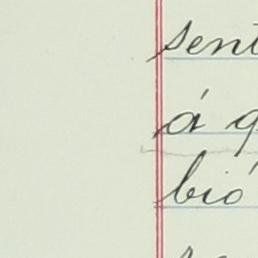 sent
á q
bió